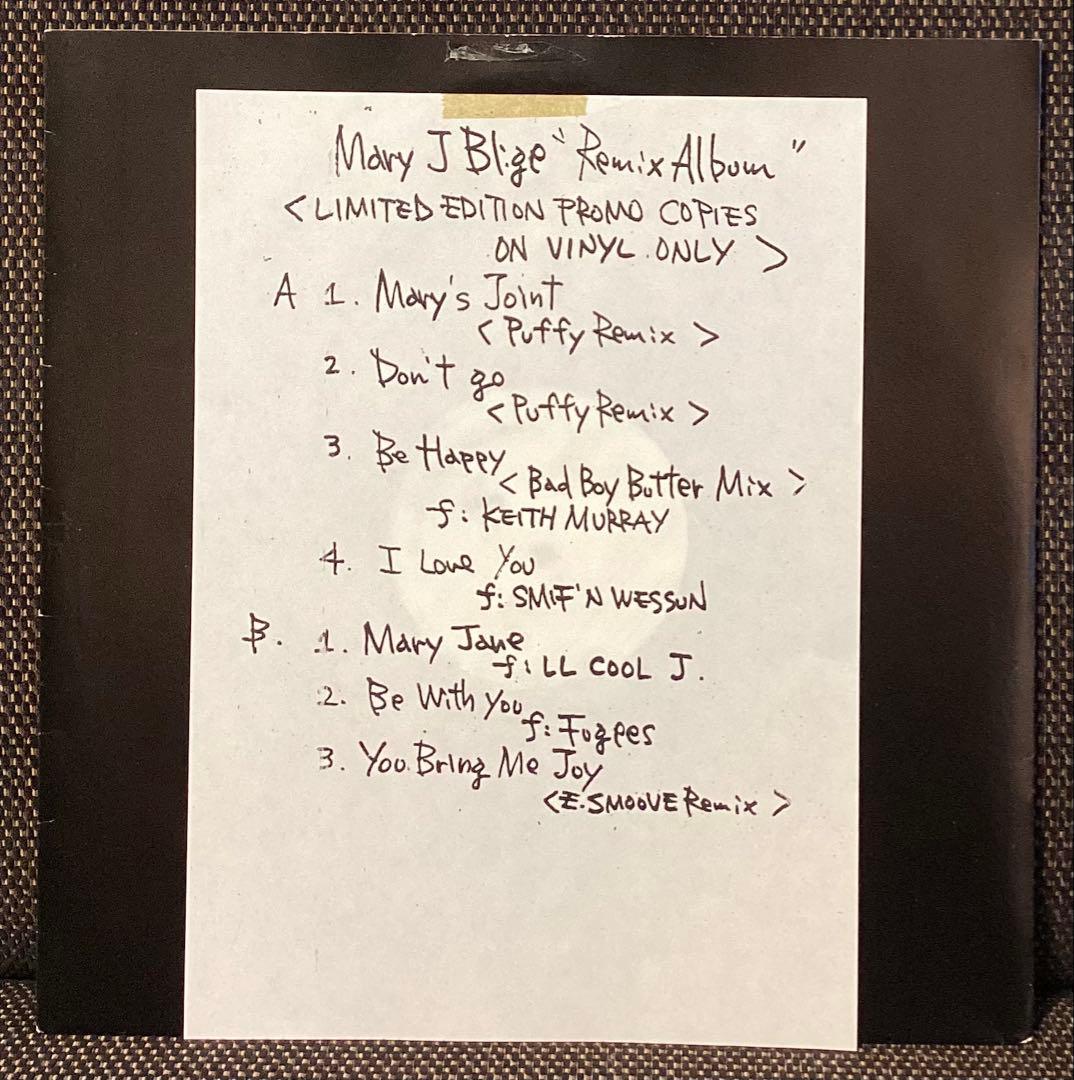 Mary J Blige "Remix Album"
< LIMITED EDITION PROMO COPIES
ON VINYL ONLY >
A 1. Mary's Joint
< Puffy Remix >
2. Don't go
< Puffy Remix >
3. Be Happy
< Bad Boy Butter Mix >
f: KEITH MURRAY
4. I Love You
f: SMIF'N WESSUN
B. 1. Mary Jane
f: LL COOL J.
2. Be With You
f: Fugees
3. You Bring Me Joy
<E.SMOOVE Remix >